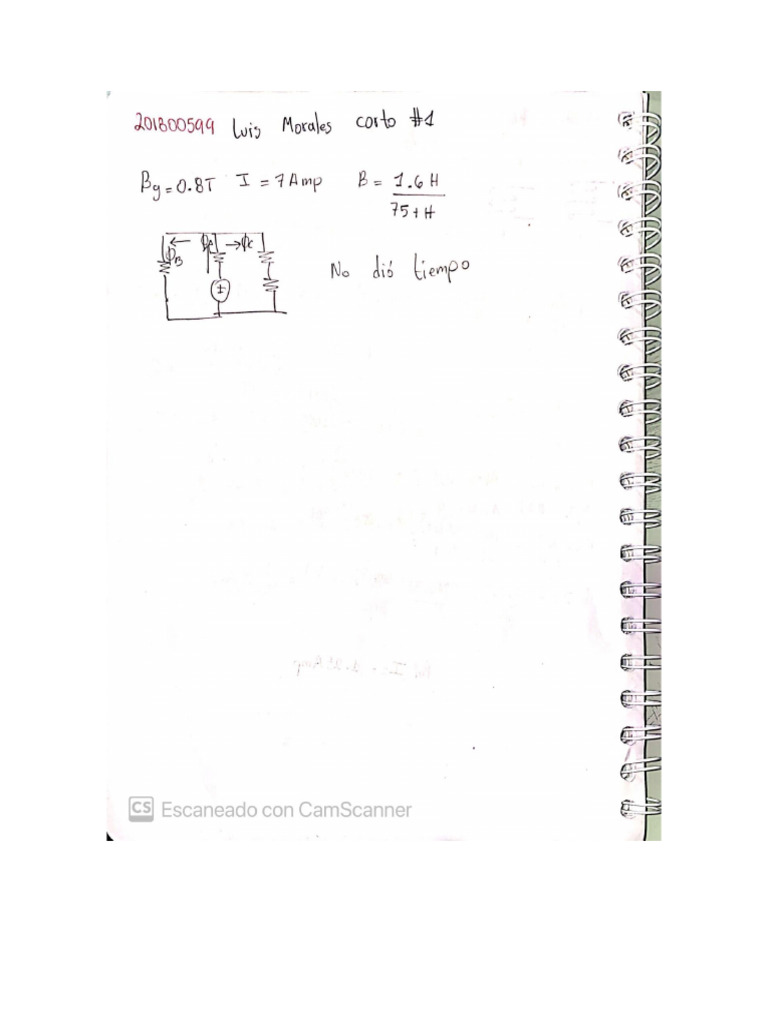 201800599 Luis Morales corto #1
Bg=0.8T I = 7Amp B = 1.6 H
75+H
ΦB Φc
No dió tiempo
CS Escaneado con CamScanner